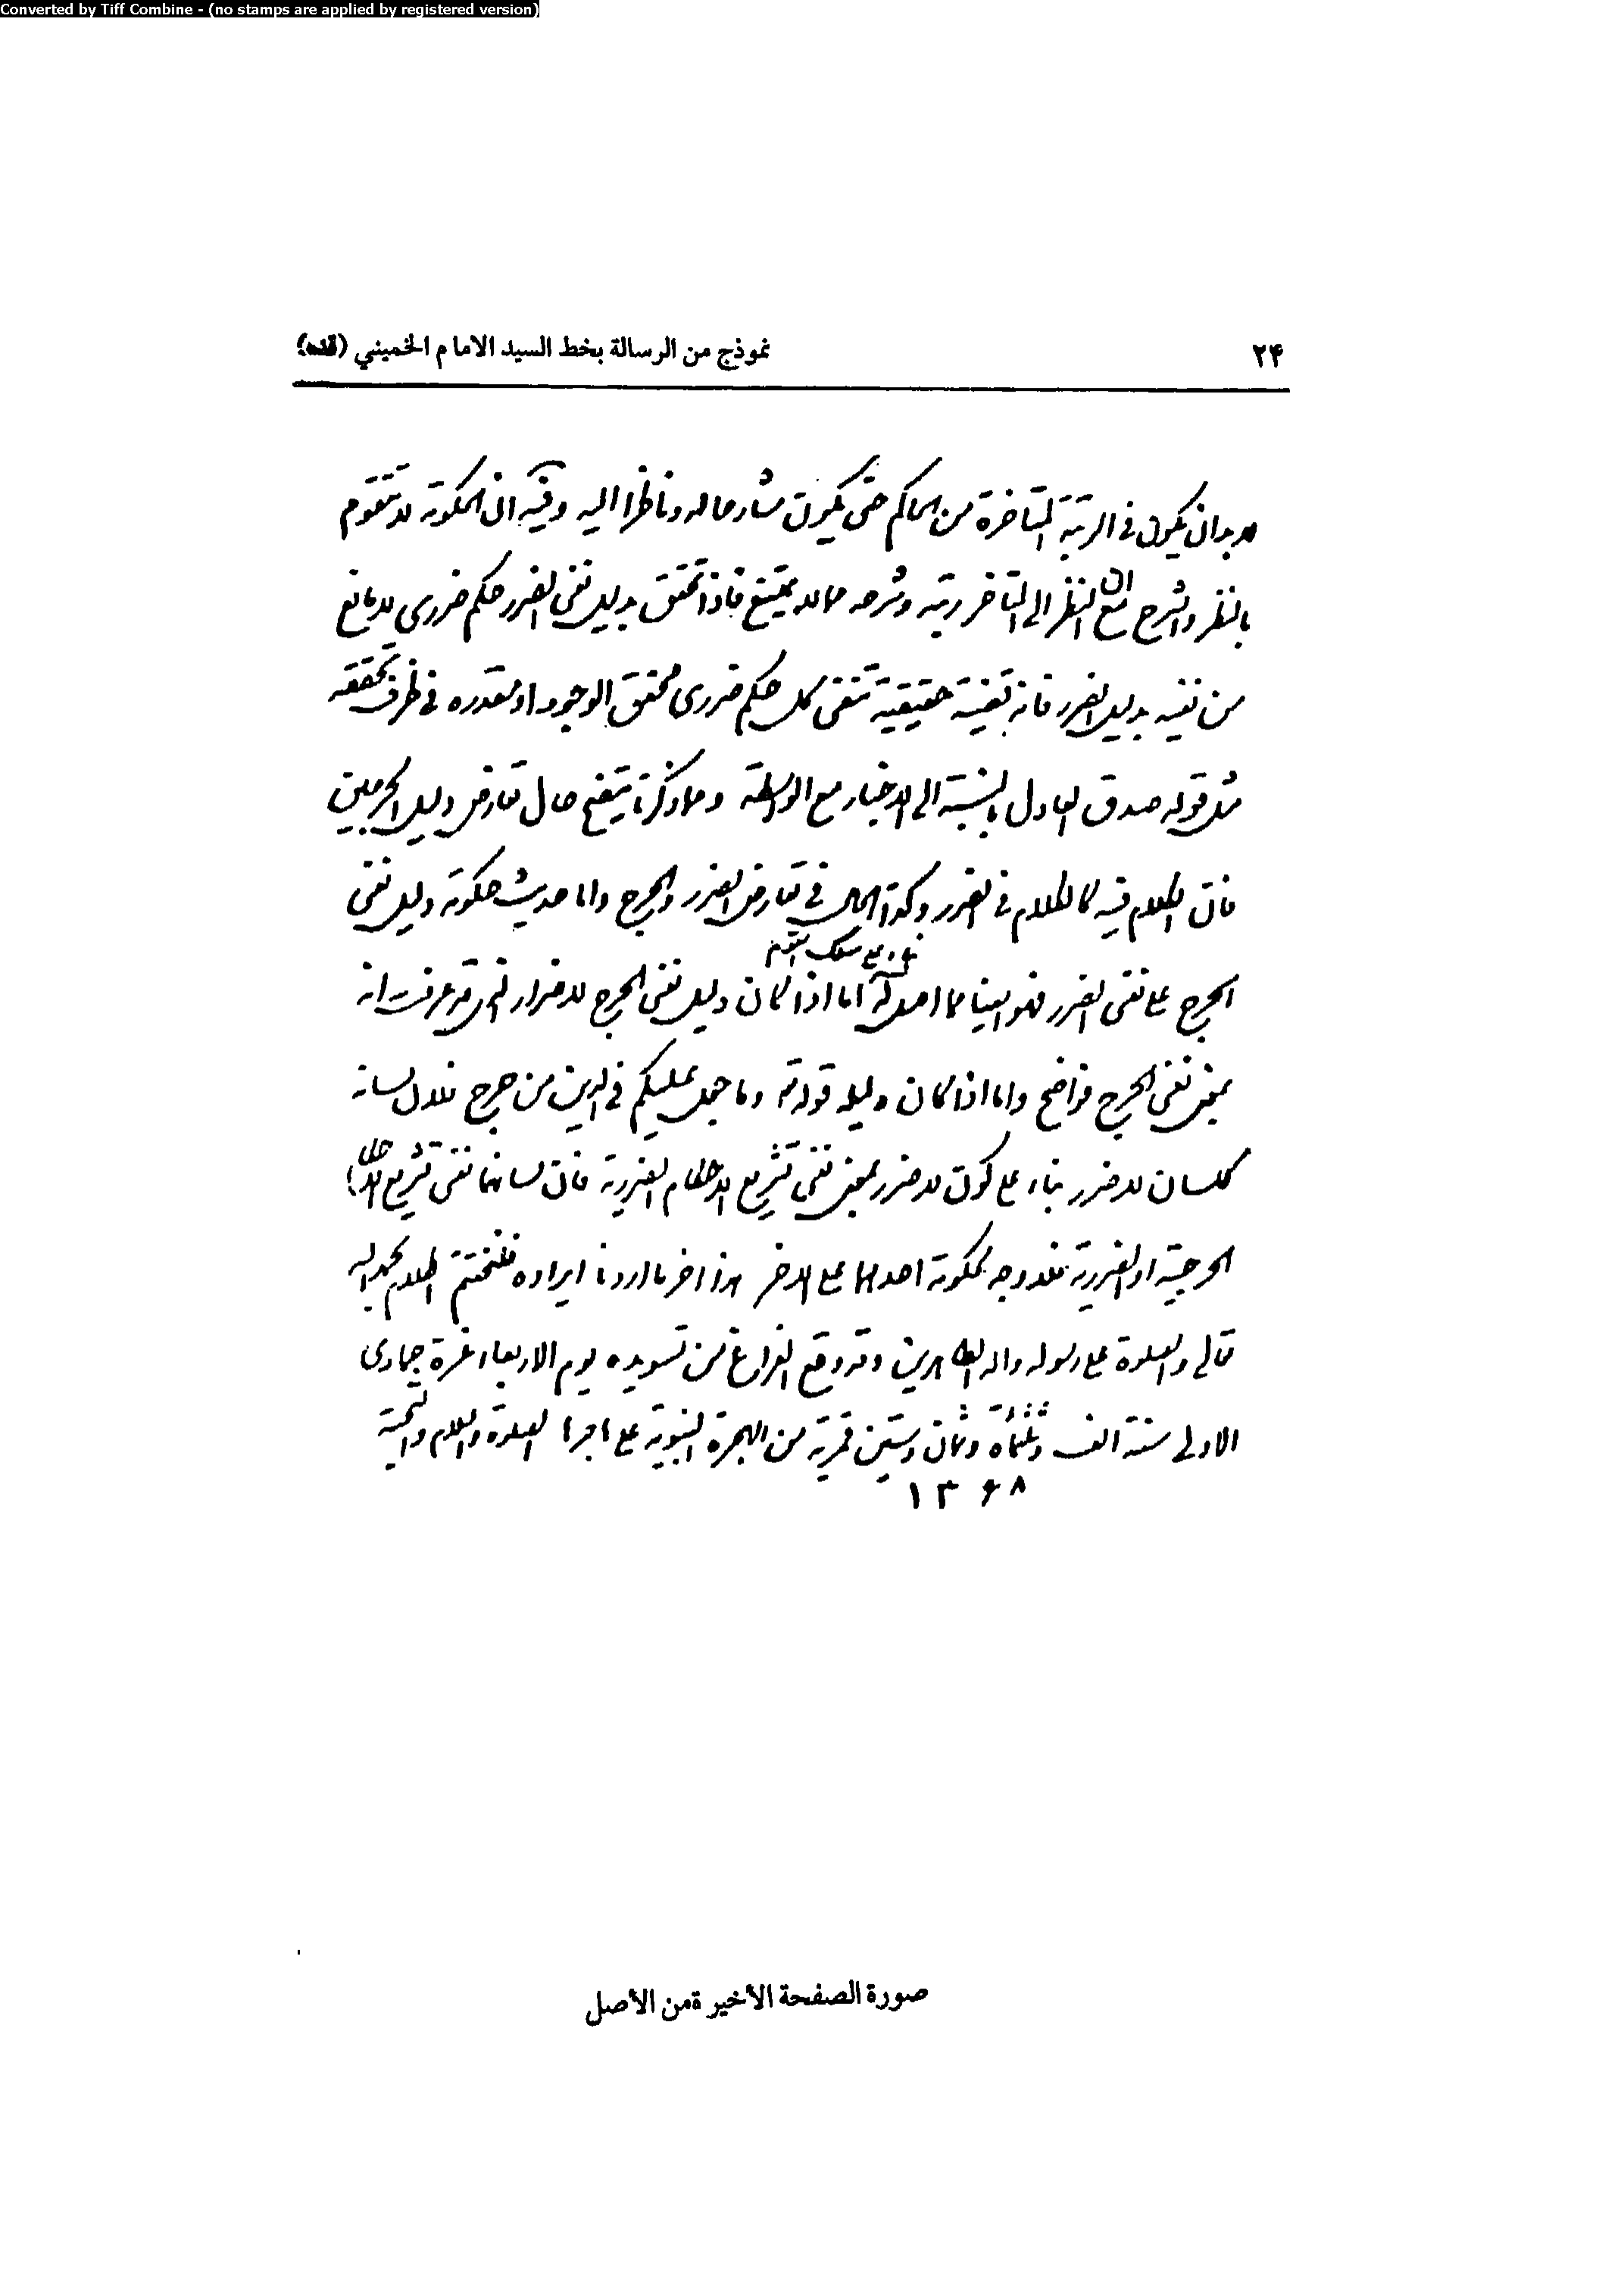 Converted by Tiff Combine - (no stamps are applied by registered version)
۲۴ نموذج من الرسالة بخط السيد الامام الخميني (قده)
لا بد ان يكون فى الرتبة المتأخرة من الحاكم حتى يكون شارحا له وناظرا اليه وفيه ان الحكومة لا تتقوم
بالنظر والشرح مع ان النظر الى المتأخر رتبة وشرحه مما لا يمتنع فاذا تحقق بدليل نفى الضرر حكم ضررى لا مانع
من نفيه بدليل الضرر فانه قضية حقيقية تنفى كل حكم ضررى محقق الوجود او مقدره فى ظرف تحققه
مثل قوله صدق العادل بالنسبة الى الاخبار مع الواسطة ومما ذكرنا يتضح حال تعارض دليل الحرجين
فان الكلام فيه كالكلام فى الضرر وكذا الحال فى تعارض الضرر والحرج واما حديث حكومة دليل نفى
الحرج على نفى الضرر فهو ايضا مما لا اصل له اما اذا كان دليل نفى الحرج لا ضرار فقد عرفت انه
بناء على مسلك القوم
بمعنى نفى الحرج فواضح واما اذا كان دليله قوله تع وما جعل عليكم فى الدين من حرج فلان لسانه
كلسان لا ضرر بناء على كون لا ضرر بمعنى نفى تشريع الاحكام الضررية فان لسانهما نفى تشريع الاحكام
الحرجية او الضررية فلا وجه لحكومة احدهما على الاخر هذا اخر ما اردنا ايراده فلنختتم الكلام بحمد الله
تعالى والصلوة على رسوله واله الطاهرين وقد وقع الفراغ من تسويده يوم الاربعاء غرة جمادى
الاولى سنة الف وثلثمأة وثمان وستين قمرية من الهجرة النبوية على هاجرها الصلوة والسلام والتحية
۱۳۶۸
صورة الصفحة الأخير ةمن الأصل